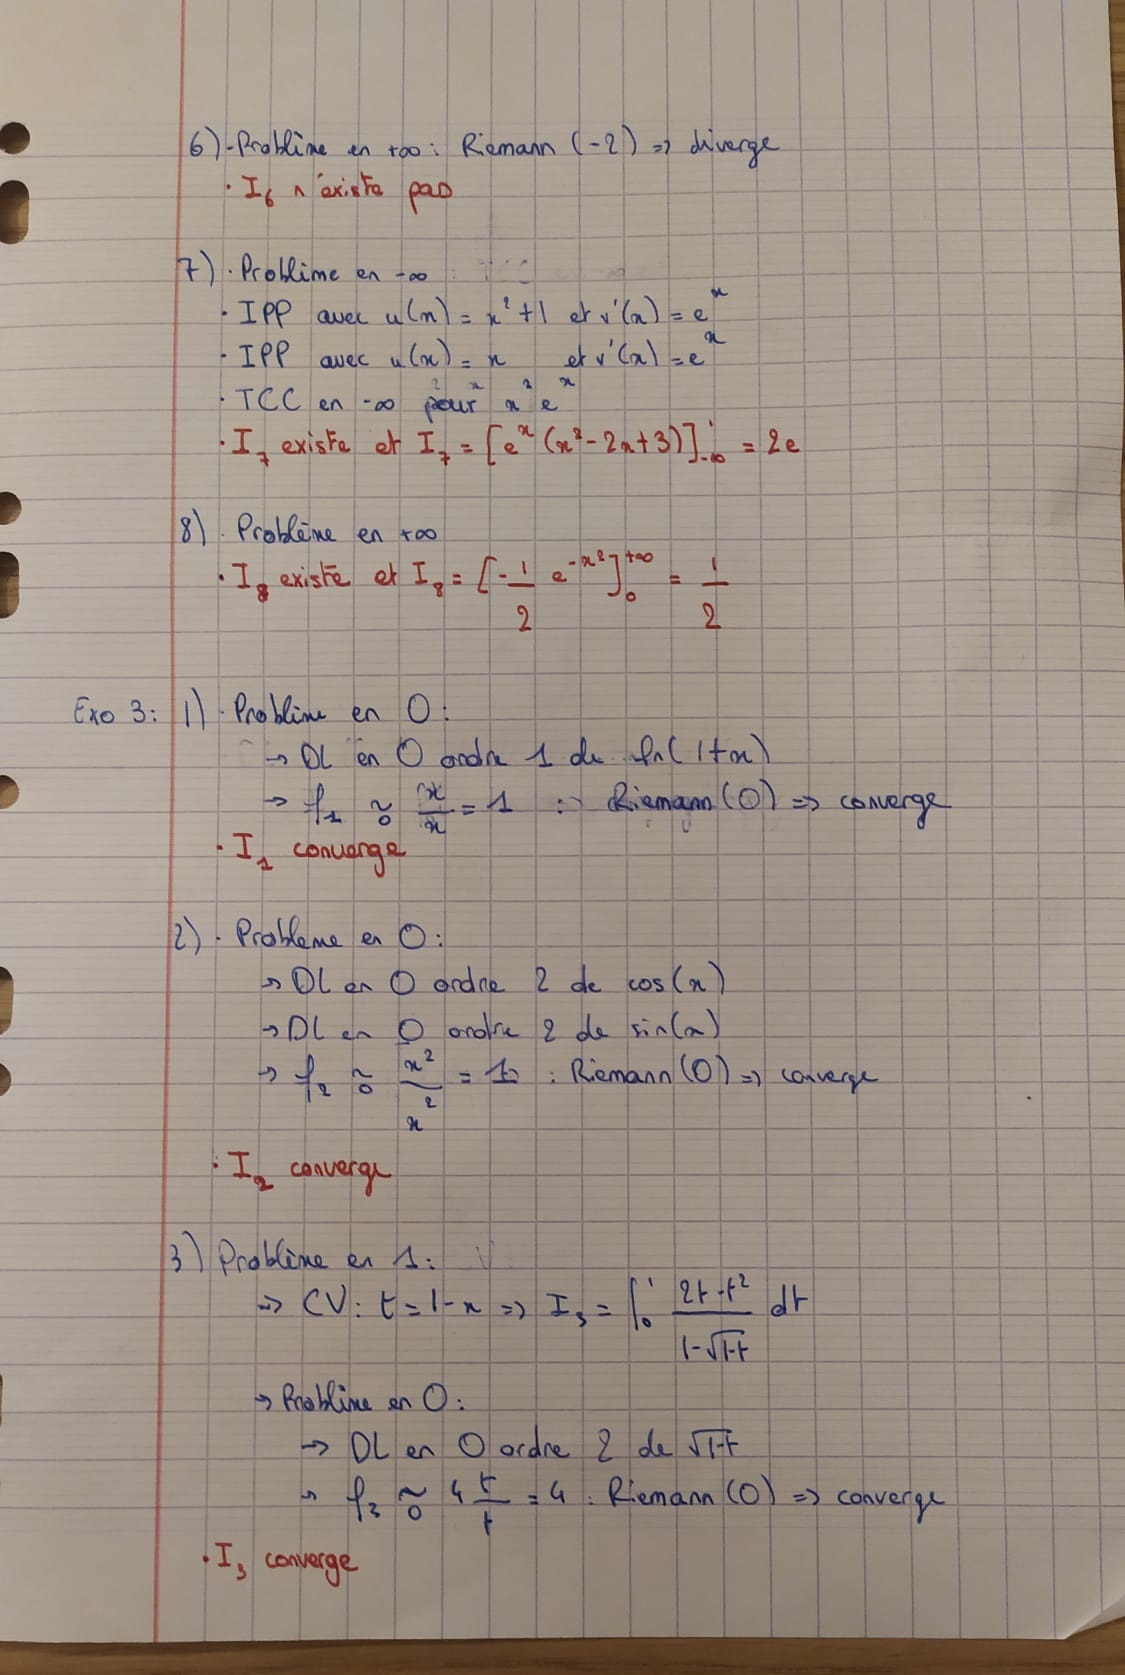 6) - Problème en +∞ : Riemann (-2) => diverge
· I₆ n'existe pas
7) · Problème en -∞
· IPP avec u(x) = x² + 1 et v'(x) = eˣ
· IPP avec u(x) = x et v'(x) = eˣ
· TCC en -∞ pour x² eˣ
· I₇ existe et I₇ = [eˣ (x² - 2x + 3)]¹₋∞ = 2e
8) · Problème en +∞
· I₈ existe et I₈ = [- 1/2 e^(-x²)]₀^(+∞) = 1/2
Exo 3 : 1) · Problème en 0 :
→ DL en 0 ordre 1 de ln(1+x)
→ f₁ ~₀ x/x = 1 : Riemann (0) => converge
· I₁ converge
2) · Problème en 0 :
→ DL en 0 ordre 2 de cos(x)
→ DL en 0 ordre 2 de sin(x)
→ f₂ ~₀ x²/x² = 1 : Riemann (0) => converge
· I₂ converge
3) Problème en 1 :
→ CV : t = 1-x => I₃ = ∫₀¹ (2t - t²)/(1-√(1-t)) dt
→ Problème en 0 :
→ DL en 0 ordre 2 de √(1-t)
→ f₃ ~₀ 4 t/t = 4 : Riemann (0) => converge
· I₃ converge